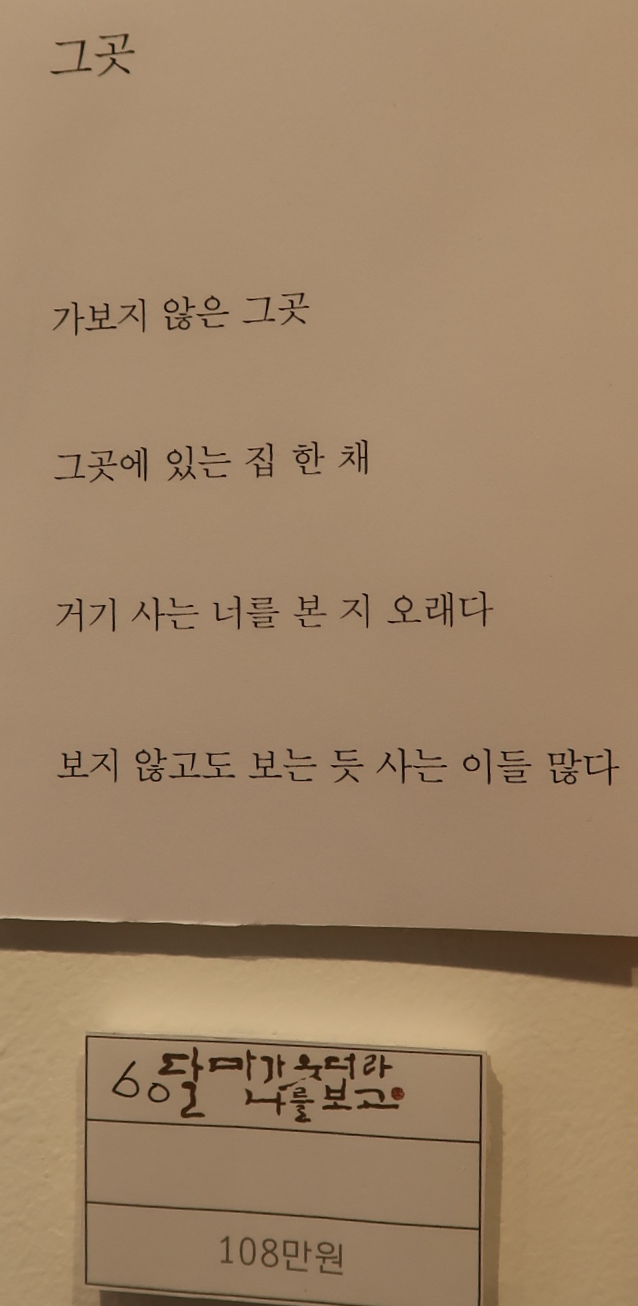 그곳
가보지 않은 그곳
그곳에 있는 집 한 채
거기 사는 너를 본 지 오래다
보지 않고도 보는 듯 사는 이들 많다
60 달마가 웃더라
나를 보고
108만원